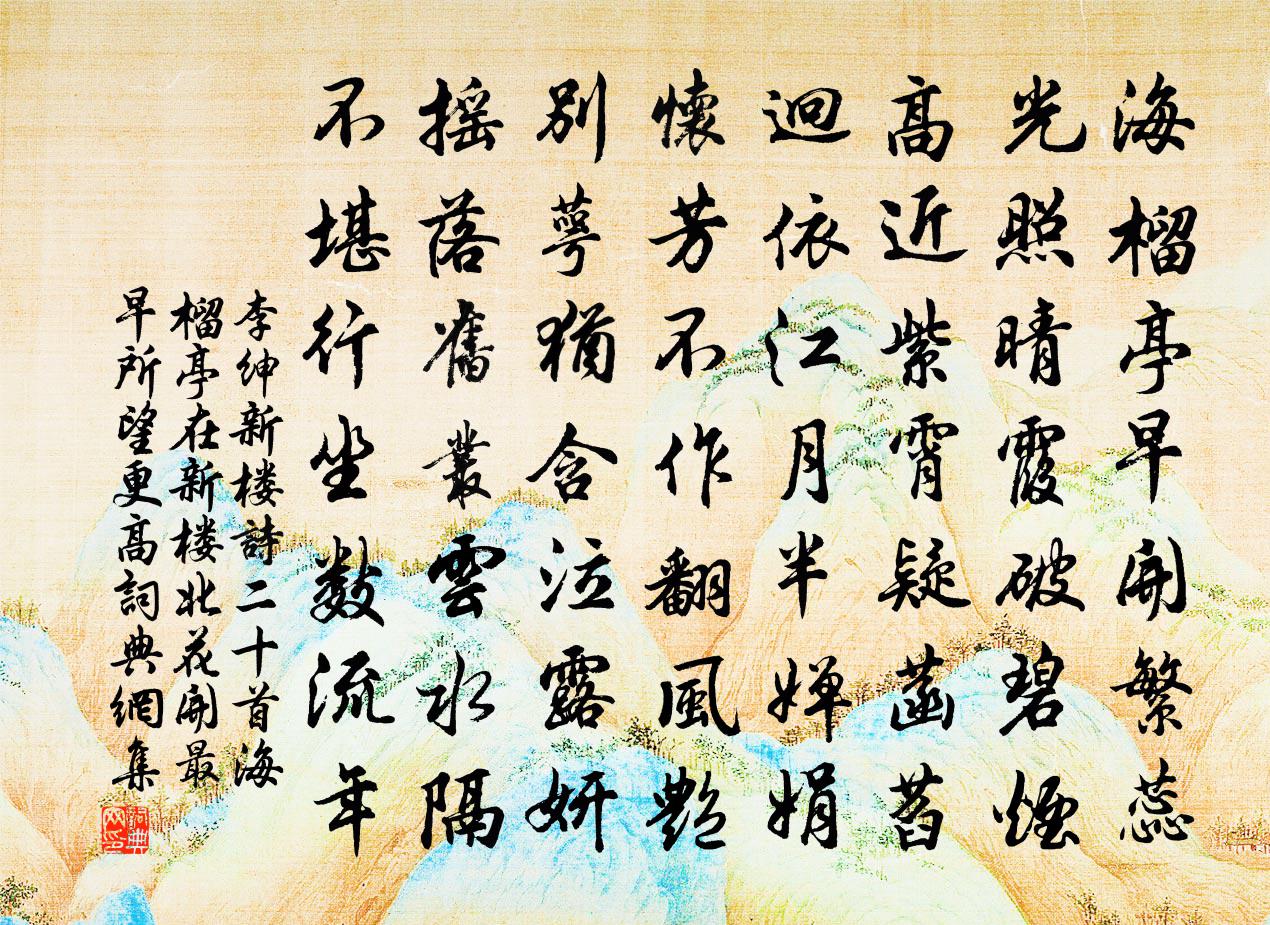 海榴亭早開繁蕊
光照晴霞破碧煙
高近紫霄疑菡萏
迥依江月半嬋娟
懷芳不作翻風艷
別萼猶含泣露妍
搖落舊叢雲水隔
不堪行坐數流年
李紳新楼詩二十首海
榴亭在新楼北花開最
早所望更高詞典網集